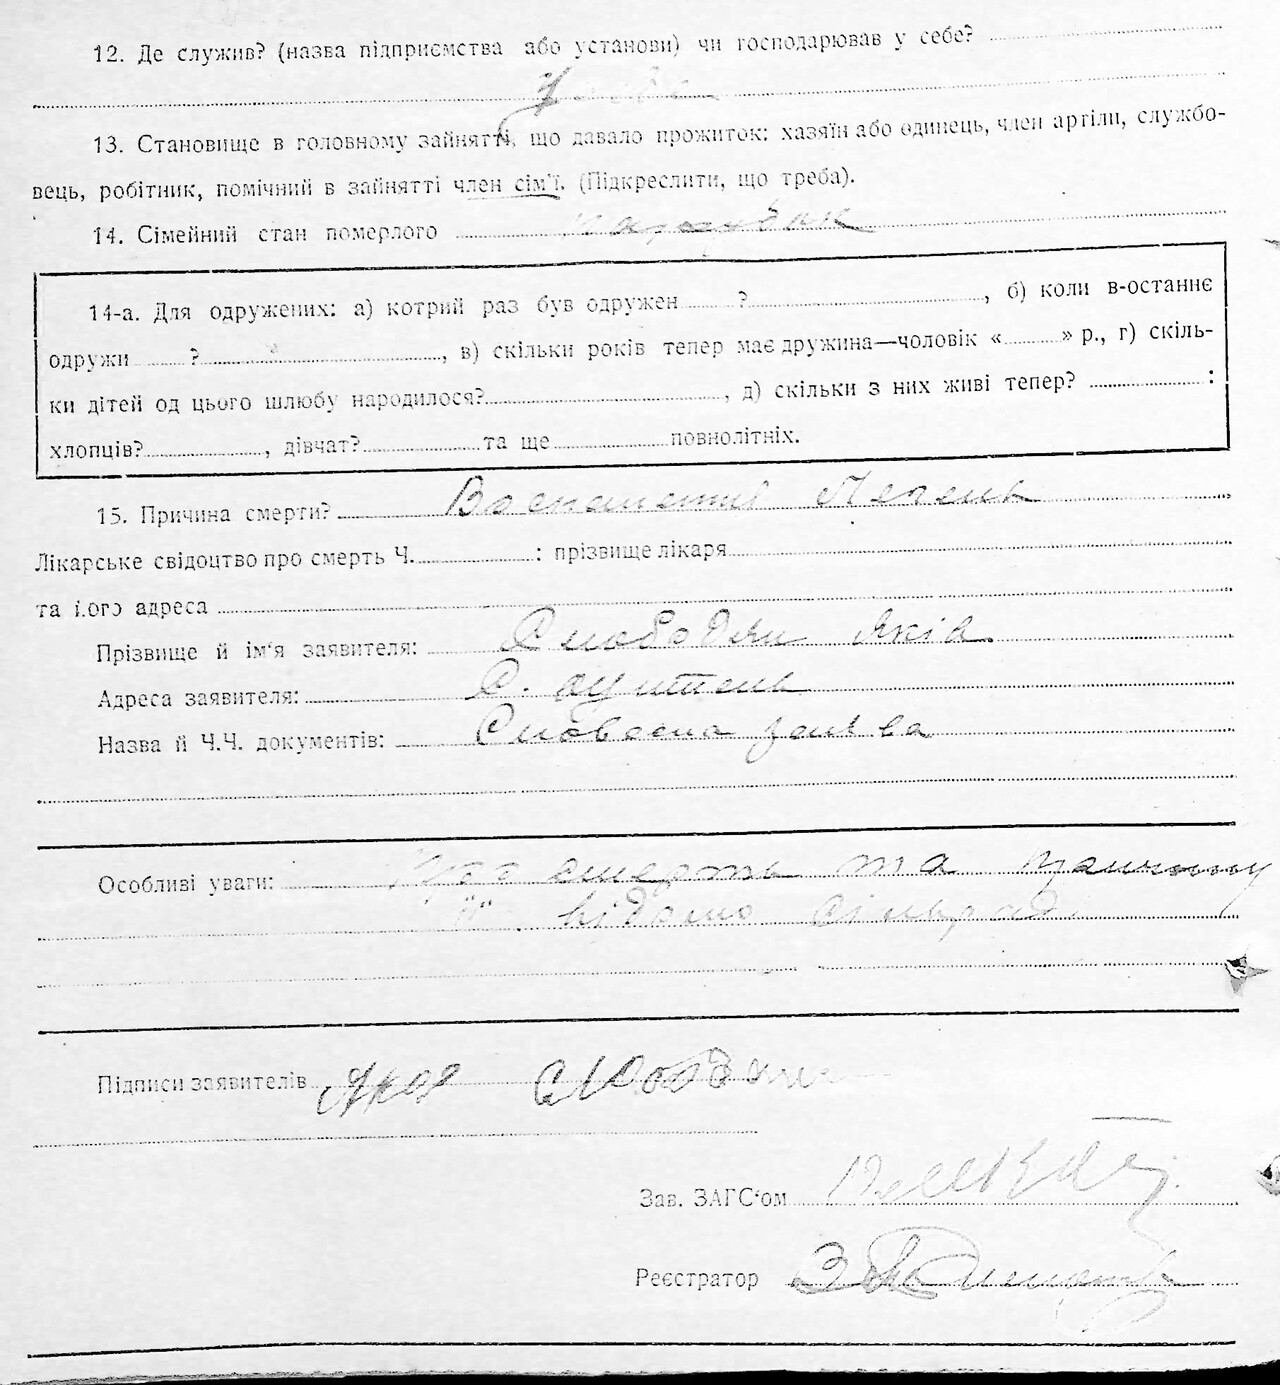 12. Де служив? (назва підприємства або установи) чи господарював у себе?
У себе
13. Становище в головному зайнятті, що давало прожиток: хазяїн або одинець, член артіли, службо-
вець, робітник, помічний в зайнятті член сім'ї. (Підкреслити, що треба).
14. Сімейний стан померлого
14-а. Для одружених: а) котрий раз був одружен ? , б) коли в-останнє
одружи ? , в) скільки років тепер має дружина—чоловік « » р., г) скіль-
ки дітей од цього шлюбу народилося? , д) скільки з них живі тепер? :
хлопців? , дівчат? та ще повнолітніх.
15. Причина смерти? Легень
Лікарське свідоцтво про смерть Ч. : прізвище лікаря
та його адреса
Прізвище й ім'я заявителя: Слободян Яків
Адреса заявителя: С.
Назва й Ч.Ч. документів: Словесна заява
Особливі уваги: Про смерть та причину
її відомо сільраді
Підписи заявителів Яков Слободян
Зав. ЗАГС'ом
Реєстратор